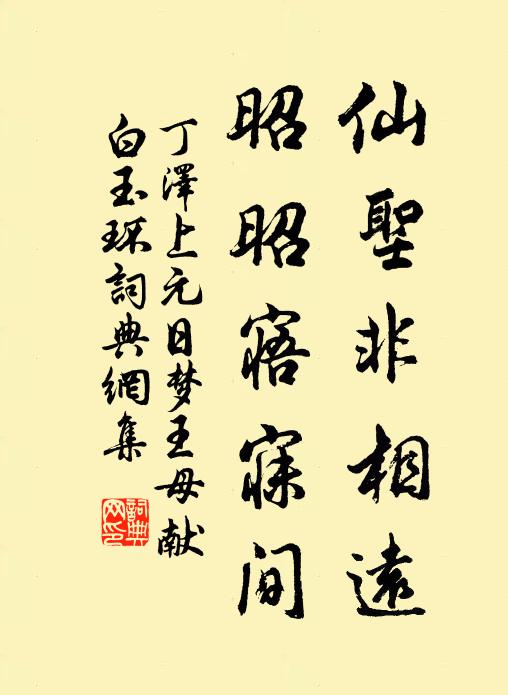 仙聖非相遠
昭昭寤寐间
丁澤上元日梦王母献
白玉环詞典網集
詞典网印